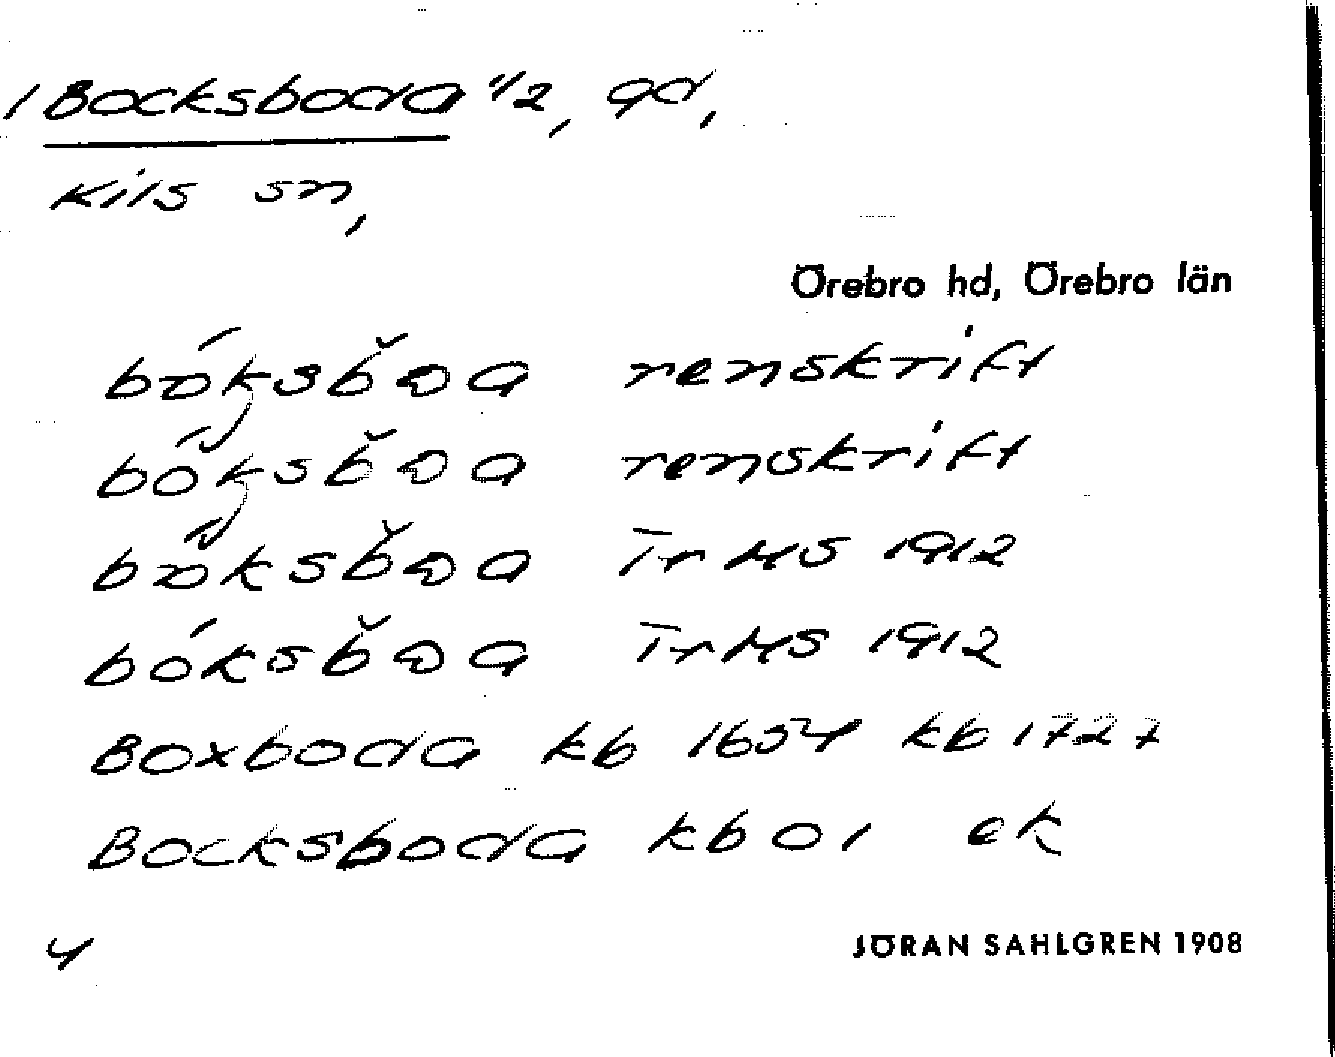 1 Bocksboda 1/2, gd,
Kils sn,
Örebro hd, Örebro län
renskrift
renskrift
TrHS 1912
bóksb̆ɷa TrHS 1912
Boxboda kb 1654 kb 1727
Bocksboda kb 01 ek
4
JÖRAN SAHLGREN 1908